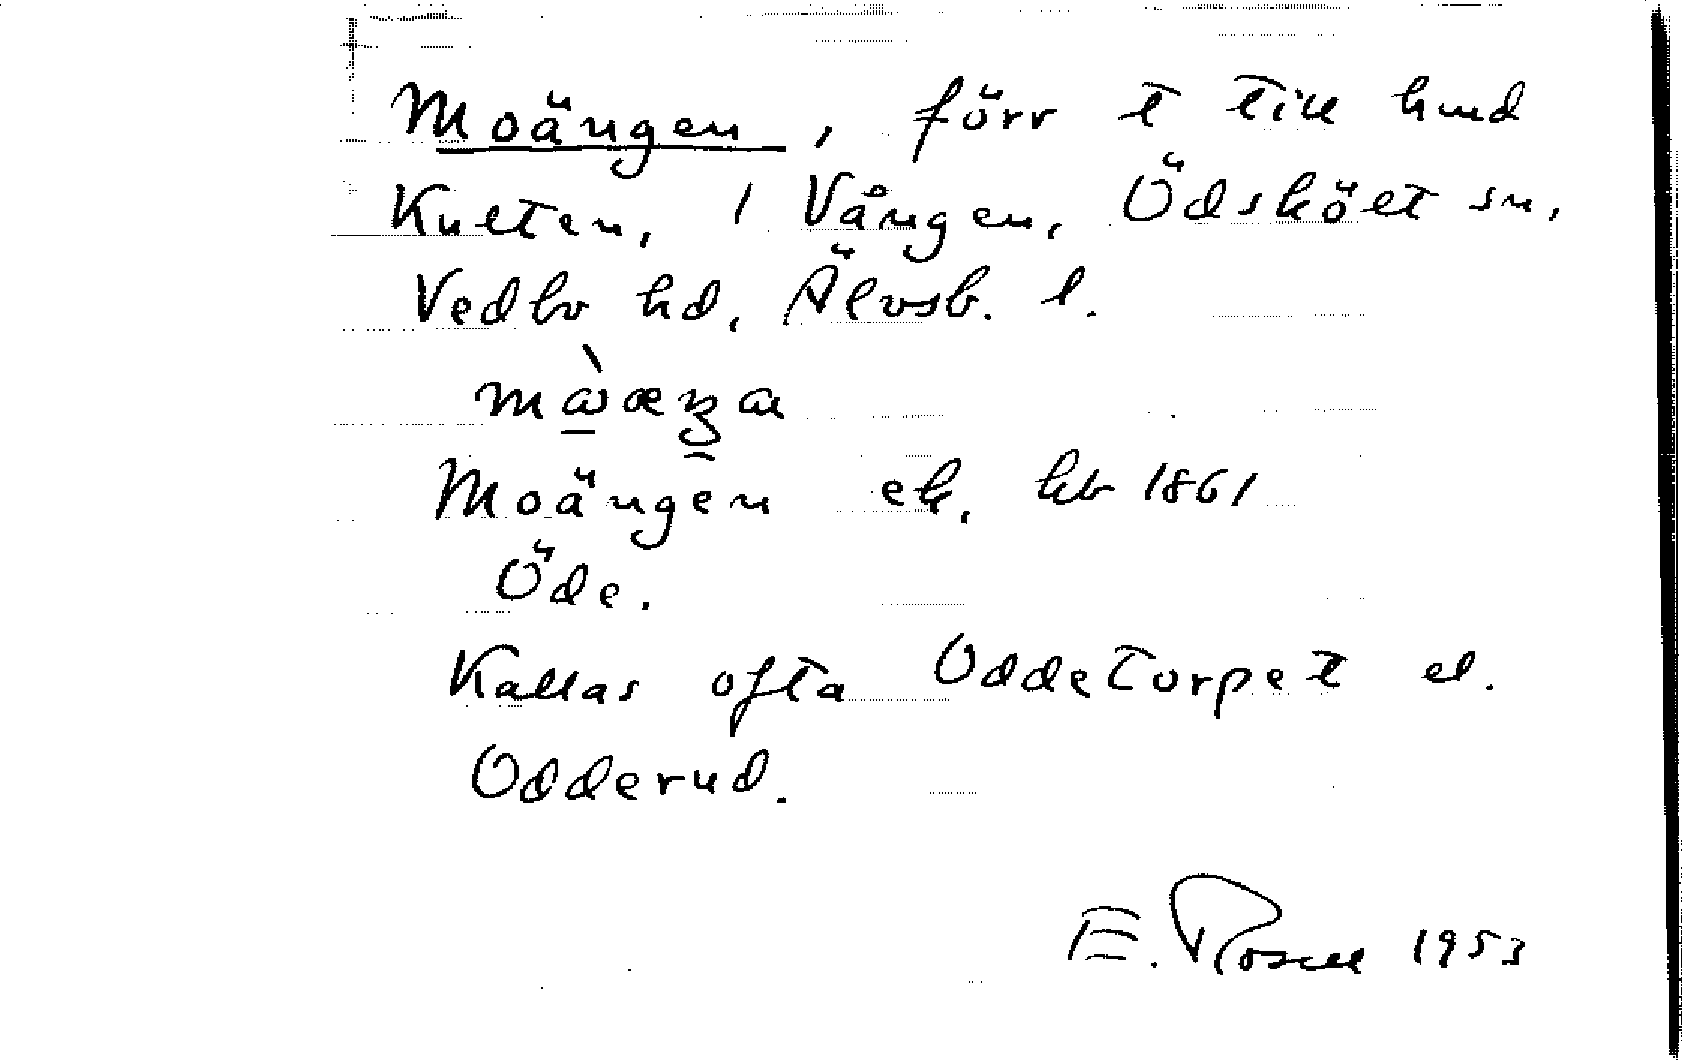 Moängen, förr t till hmd
Kulten, 1 Vången, Ödskölt sn,
Vedbo hd, Älvsb. l.
Moängen ek. hb 1861
Öde.
Kallas ofta Oddetorpet el.
Odderud.
E. Rosell 1953